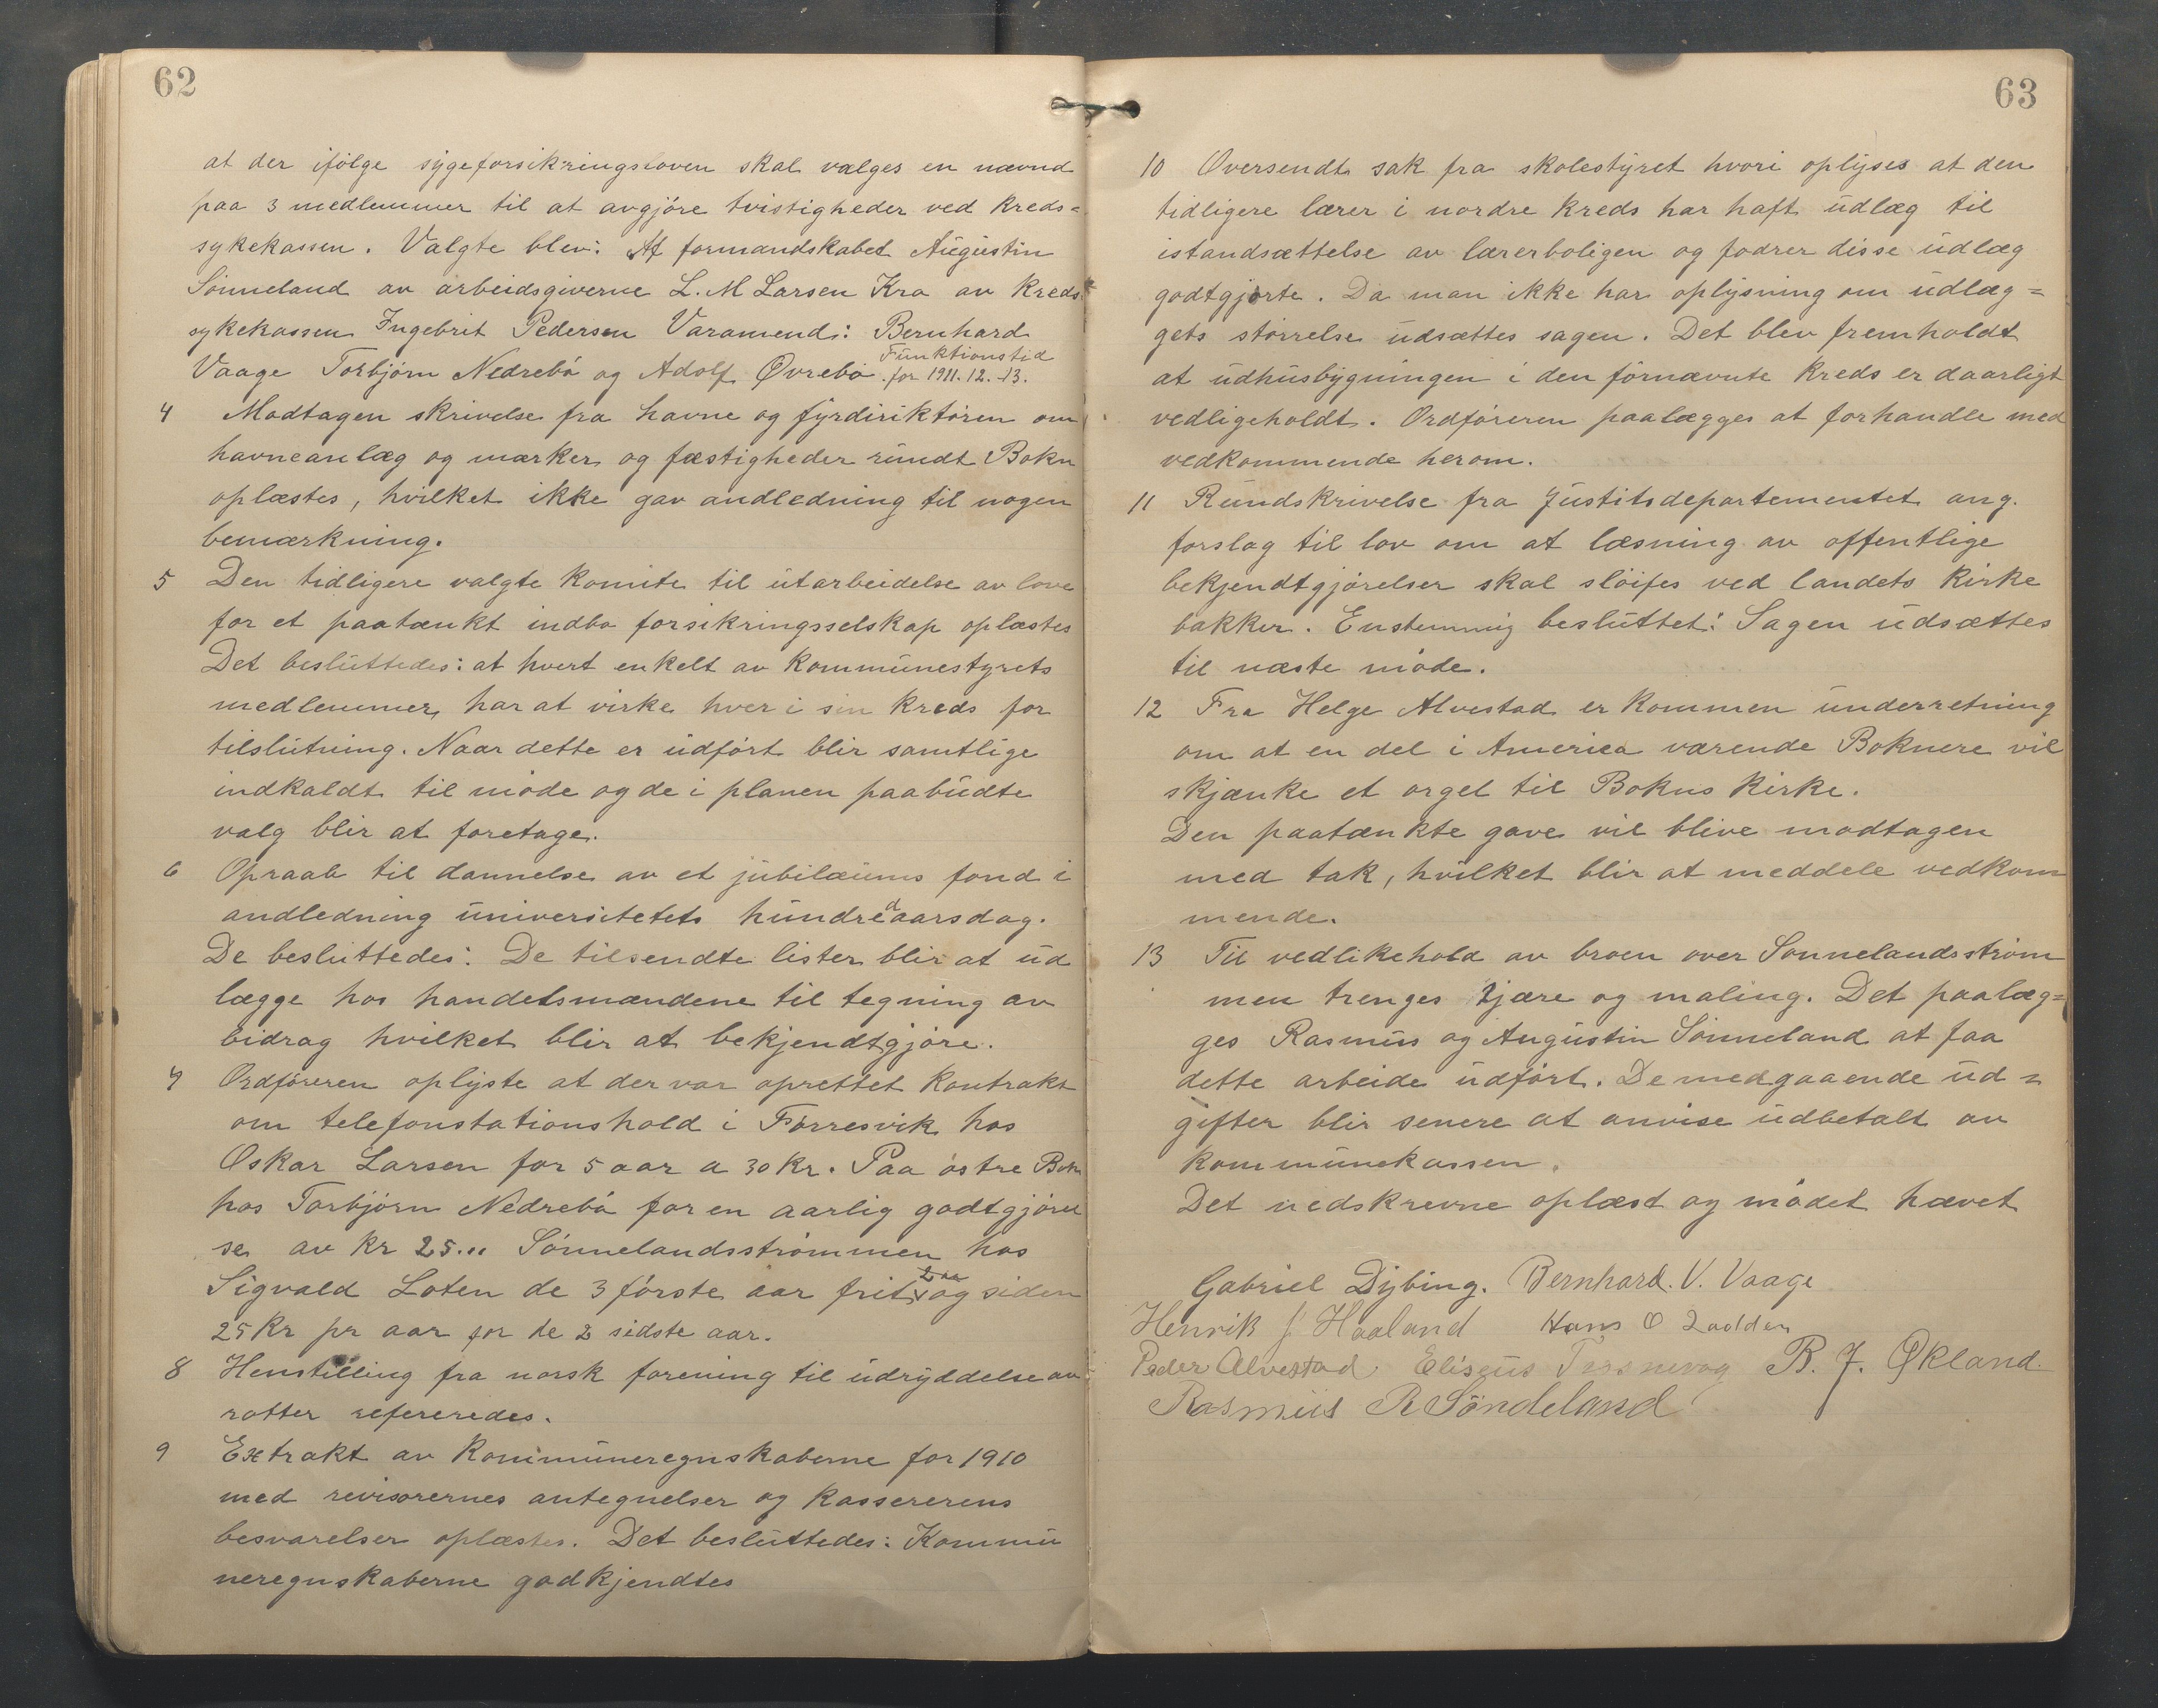 62
at der ifölge sygeforsikringsloven skal vælges en nævnd
paa 3 medlemmer til at avgjöre tvistigheder ved kreds=
sykekassen. Valgte blev: Af formandskabet Augustin
Sönneland av arbeidsgiverne L. M Larsen Kro av kreds
sykekassen Ingebrit Pedersen Varamend: Bernhard
Funktionstid
Vaage Torbjörn Nedrebö og Adolf Øvrebö for 1911. 12. -13.
4 Modtagen skrivelse fra havne og fyrdiriktören om
havneanlæg og mærker og fæstigheder rundt Bokn
oplæstes, hvilket ikke gav andledning til nogen
bemærkning.
5 Den tidligere valgte komite til utarbeidelse av love
for et paatænkt indbo forsikringsselskap oplæstes
Det besluttedes: at hvert enkelt av kommunestyrets
medlemmer har at virke hver i sin kreds for
tilslutning. Naar dette er udfört blir samtlige
indkaldt til möde og de i planen paabudte
valg blir at foretage.
6 Opraab til dannelse av et jubilæums fond i
andledning universitetets hundredaarsdag.
De besluttedes: De tilsendte lister blir at ud
lægge hos handelsmændene til tegning av
bidrag hvilket blir at bekjendtgjöre.
7 Ordföreren oplyste at der var oprettet kontrakt
om telefonstationshold i Förresvik hos
Oskar Larsen for 5 aar a 30 kr. Paa östre Bokn
hos Torbjörn Nedrebö for en aarlig godtgjörel
se av kr 25.,, Sönnelandsströmmen hos
Sigvald Loten de 3 förste aar frit og siden
25 kr pr aar for de 2 sidste aar.
8 Henstilling fra norsk forening til udryddelse av
rotter refereredes.
9 Extrakt av kommuneregnskaberne for 1910
med revisorernes antegnelser og kassererens
besvarelser oplæstes. Det besluttedes: Kommu
neregnskaberne godkjendtes
63
10 Oversendt sak fra skolestyret hvori oplyses at den
tidligere lærer i nordre kreds har haft udlæg til
istandsættelse av lærerboligen og fodrer disse udlæg
godtgjorte. Da man ikke har oplysning om udlæg=
gets störrelse udsættes sagen. Det blev fremholdt
at udhusbygningen i den förnævnte kreds er daarligt
vedligeholdt. Ordföreren paalægges at forhandle med
vedkommende herom.
11 Rundskrivelse fra Justitsdepartementet ang.
forslag til lov om at læsning av offentlige
bekjendtgjörelser skal slöifes ved landets kirke
bakker. Enstemmig besluttet: Sagen udsættes
til næste möde.
12 Fra Helge Alvestad er kommen underretning
om at en del i America værende Boknere vil
skjænke et orgel til Bokns kirke.
Den paatænkte gave vil blive modtagen
med tak, hvilket blir at meddele vedkom
mende.
13 Til vedlikehold av broen over Sönnelandsström
men trenges tjære og maling. Det paalæg=
ges Rasmus og Augustin Sönneland at faa
dette arbeide udfört. De medgaaende ud=
gifter blir senere at anvise udbetalt av
kommunekassen.
Det nedskrevne oplæst og mödet hævet
Gabriel Dybing. Bernhard. V. Vaage
Henrik J Haaland Hans O Lodden
Peder Alvestad Eliseus B. J. Økland.
Rasmus R Söndeland